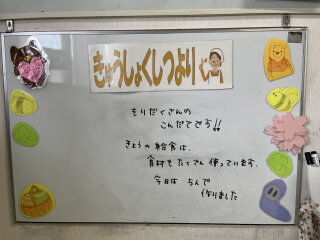 きゅうしょくしつより
もりだくさんの
こんだてです!!
きょうの給食は、
食材もたくさん使っています。
今日は 5人で
作りました